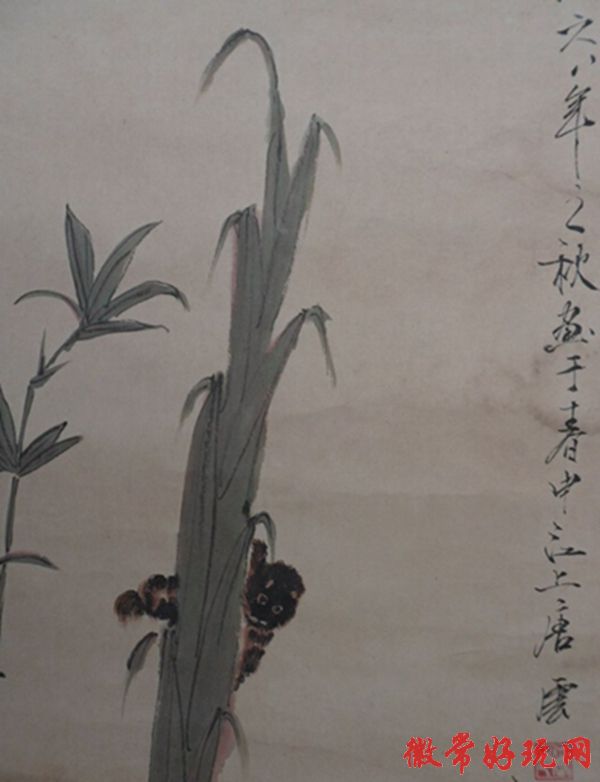 六八年之秋画于春申江上唐云
徽常好玩网